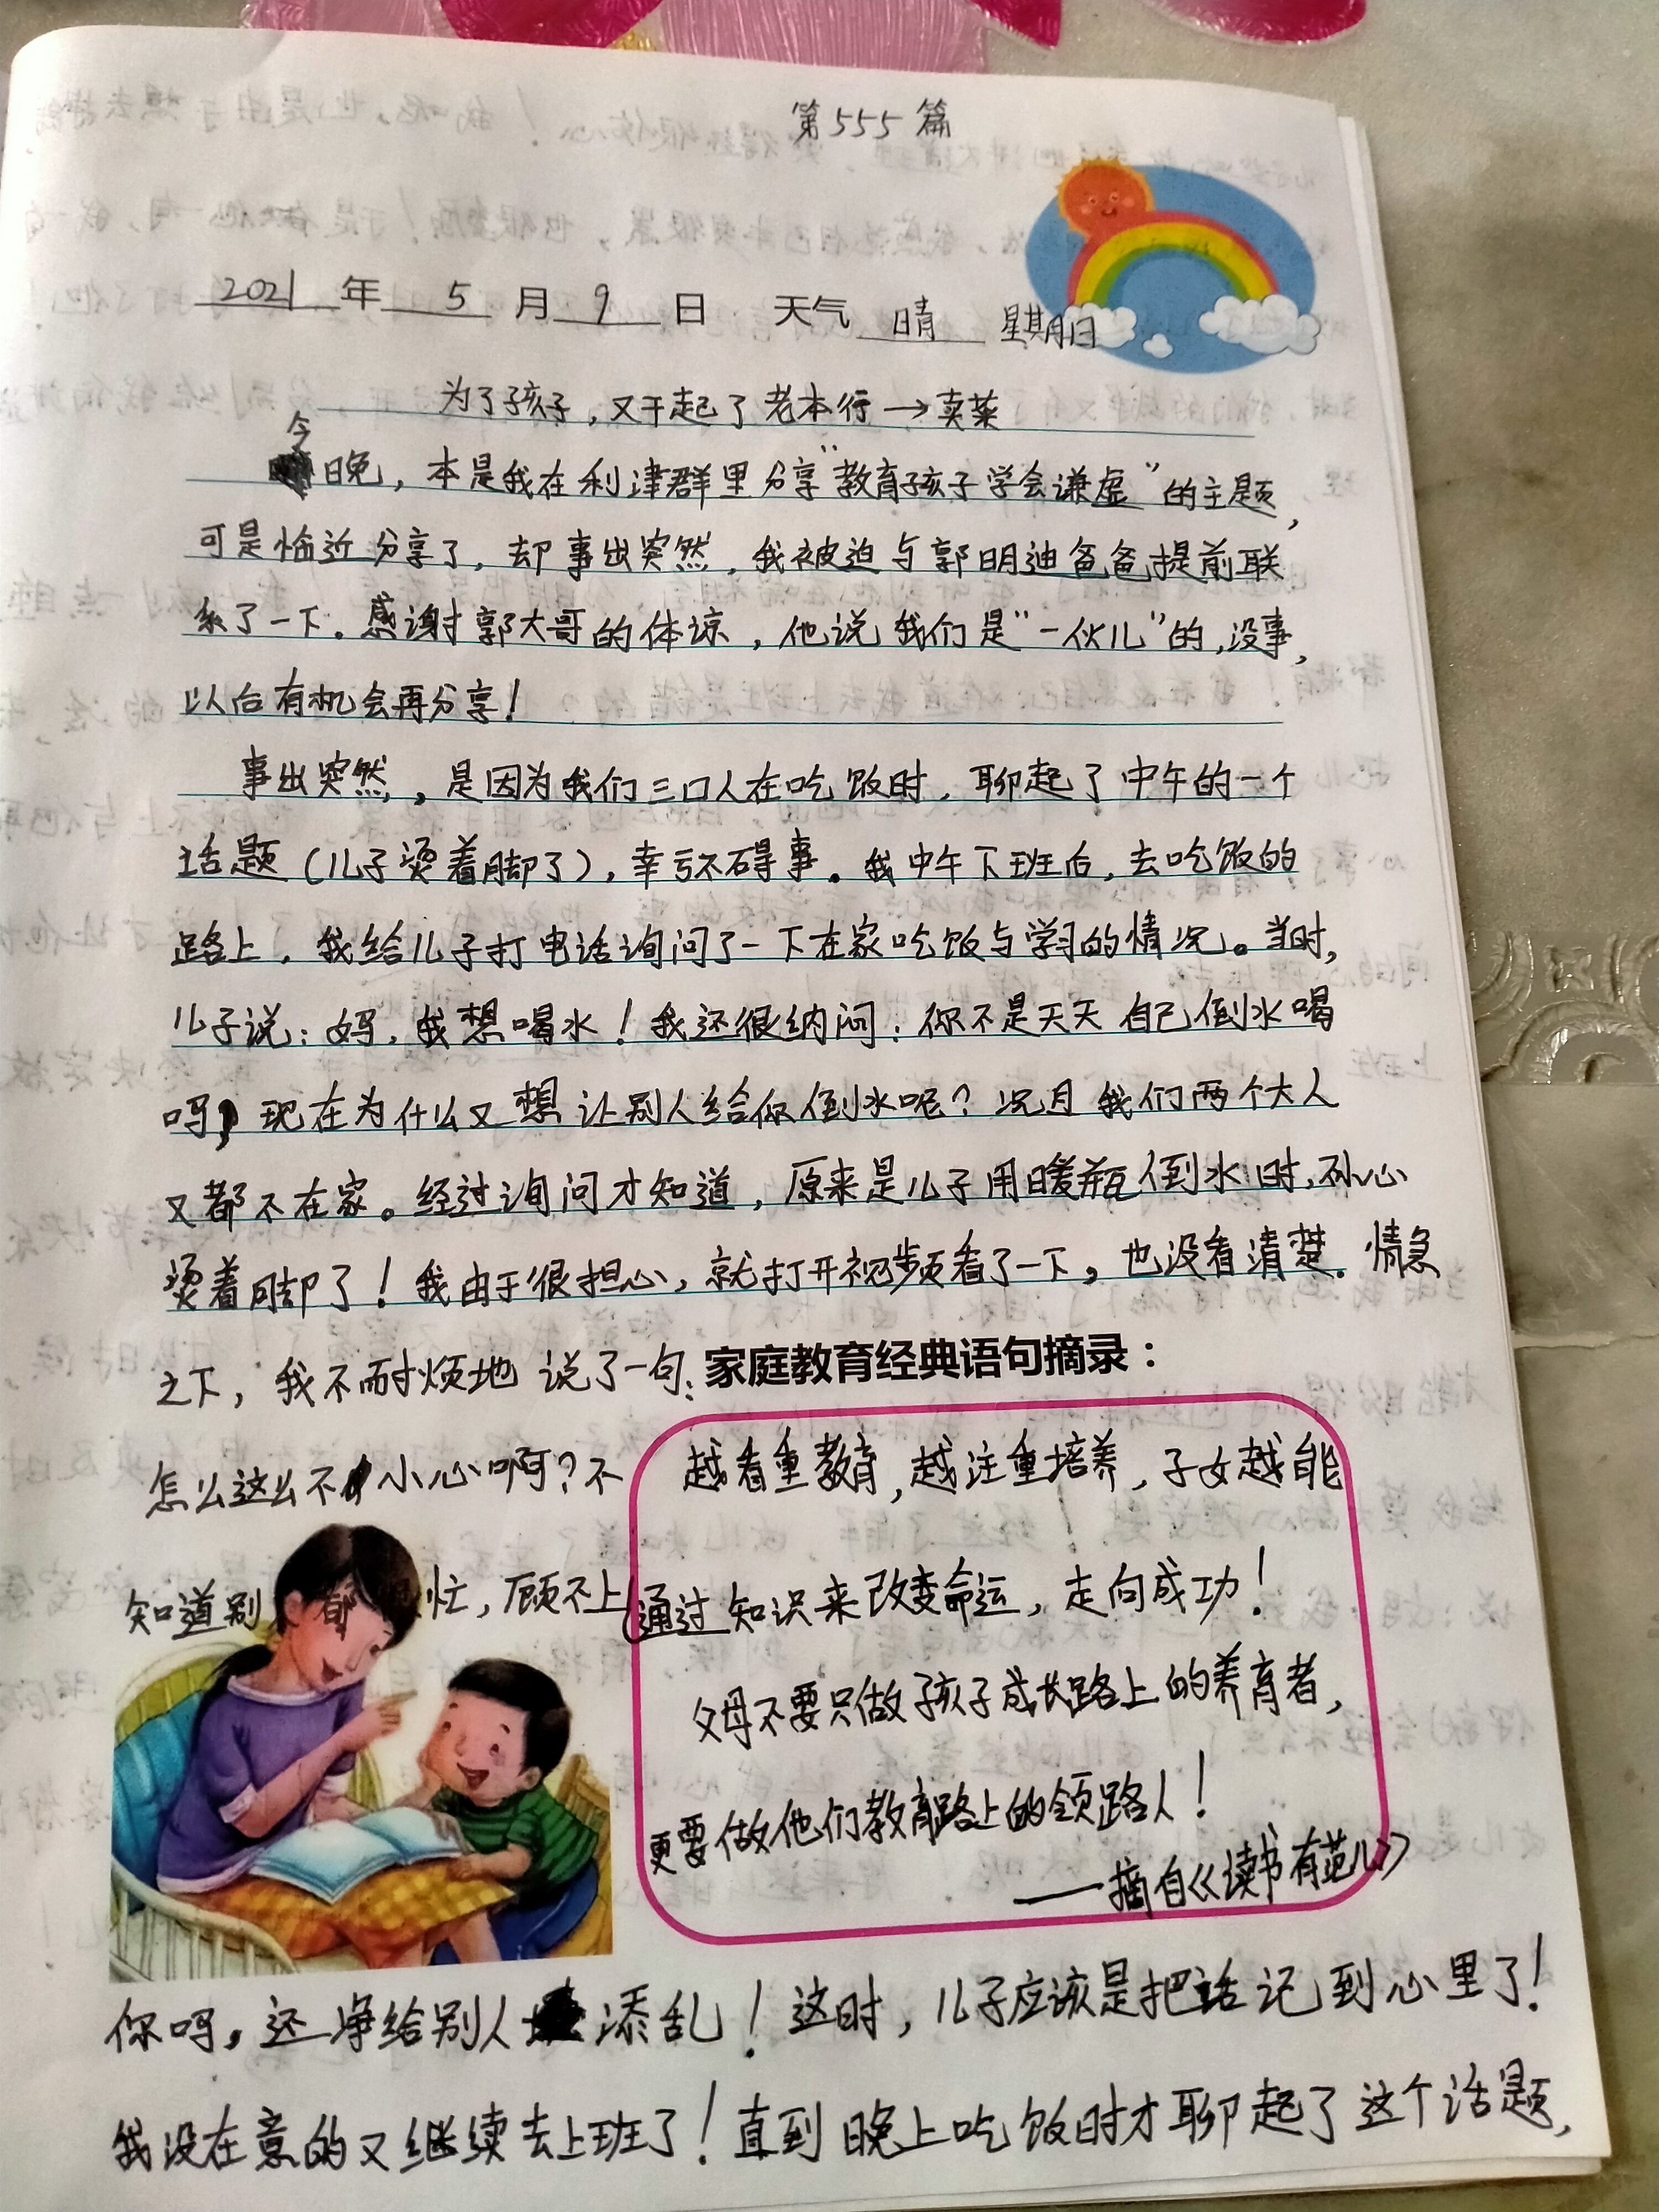 第555篇
2021年5月9日 天气 晴 星期日
为了孩子，又干起了老本行→卖菜
今晚，本是我在利津群里分享“教育孩子学会谦虚”的主题，
可是临近分享了，却事出突然，我被迫与郭明迪爸爸提前联
系了一下。感谢郭大哥的体谅，他说我们是“一伙儿”的，没事，
以后有机会再分享！
事出突然，是因为我们三口人在吃饭时，聊起了中午的一个
话题（儿子烫着脚了），幸亏不碍事。我中午下班后，去吃饭的
路上，我给儿子打电话询问了一下在家吃饭与学习的情况。当时，
儿子说：妈，我想喝水！我还很纳闷：你不是天天自己倒水喝
吗，现在为什么又想让别人给你倒水呢？况且我们两个大人
又都不在家。经过询问才知道，原来是儿子用暖瓶倒水时，不小心
烫着脚了！我由于很担心，就打开视频看了一下，也没看清楚。情急
之下，我不耐烦地说了一句：
怎么这么不小心啊？不
知道别 都 忙，顾不上
家庭教育经典语句摘录：
越看重教育，越注重培养，子女越能
通过知识来改变命运，走向成功！
父母不要只做孩子成长路上的养育者，
更要做他们教育路上的领路人！
——摘自《读书有范儿》
你吗，还净给别人添乱！这时，儿子应该是把话记到心里了！
我没在意的又继续去上班了！直到晚上吃饭时才聊起了这个话题，